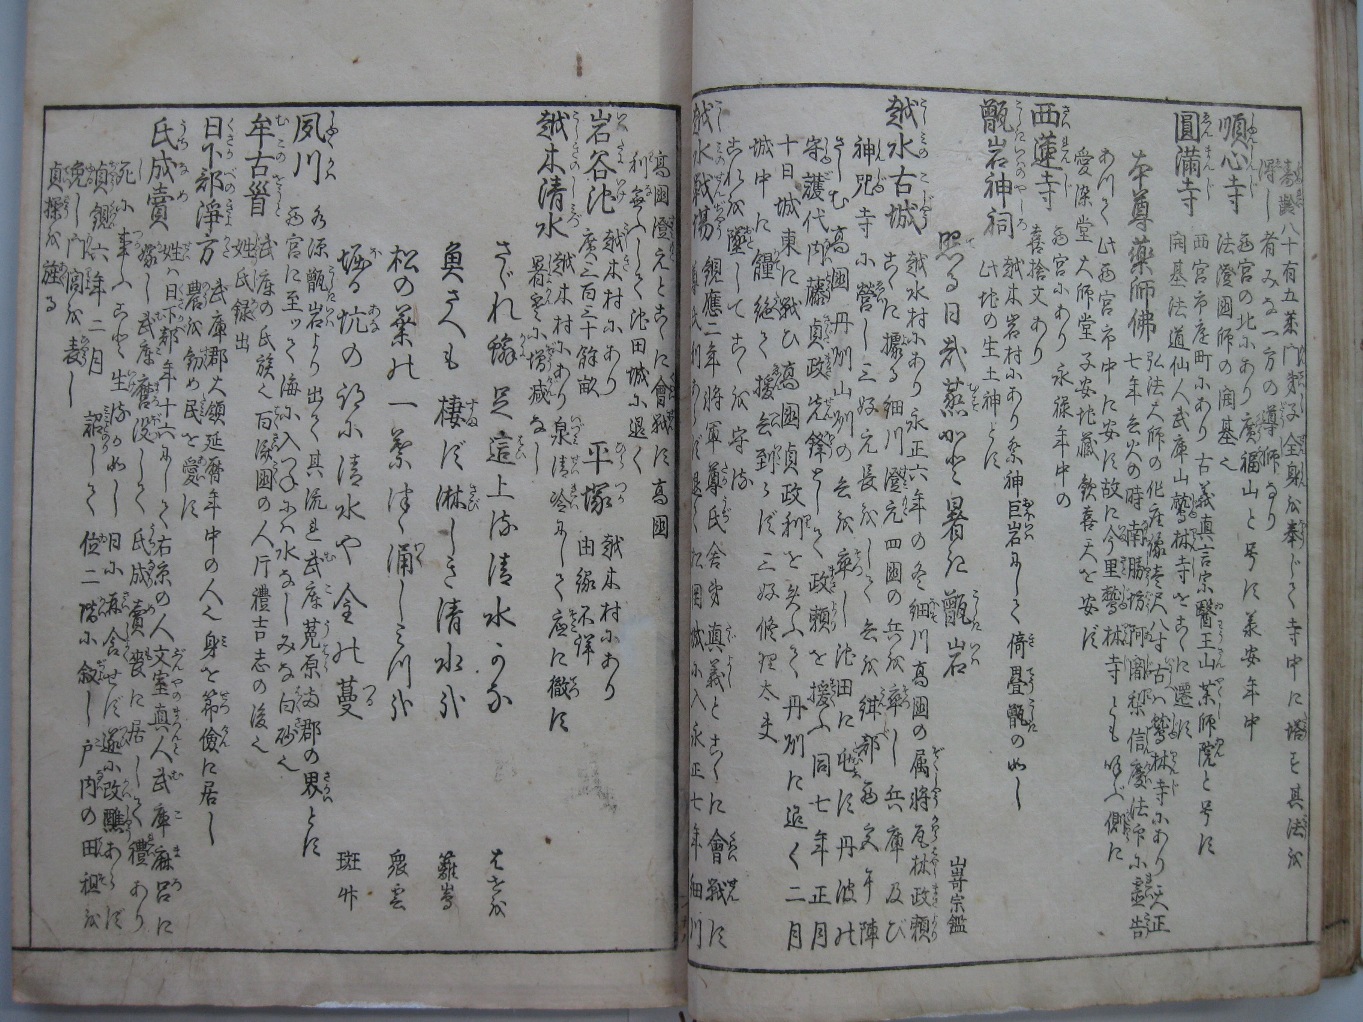 壽齡八十有五業門弟子全身を奉じて寺中に塔す其法を
得し者みな一方の導師なり
順心寺 西宮の北にあり廣福山と号す義安年中
法澄國師の開基也
圓満寺 西宮市庭町にあり古義真言宗醫王山薬師院と号す
開基法道仙人武庫山鷲林寺をこゝに遷す
本尊薬師佛 弘法大師の化座像壱尺八寸古へ鷲林寺にあり天正
七年兵火の時南勝坊阿闍梨信慶法印に霊告
ありて此西宮市中に安す故に今里鷲林寺とも呼べ側に
愛染堂大師堂子安地蔵歓喜天を安ず
西蓮寺 西宮にあり永禄年中の
喜捨文あり
甑岩神祠 越木岩村にあり祭神巨岩にして倚疊甑の如し
此地の生土神とす
照る日哉蒸ほど暑き甑岩 山崎宗鑑
越水古城 越水村にあり永正六年の冬細川高國の属将瓦林政頼
こゝに據る細川澄元四國の兵を率し兵庫及び
神咒寺に營し三好元長をして兵を鉗部西宮に陣
さしむ高國丹州山州の兵を率し池田に屯す丹波の
守護代内藤貞政先鋒として政頼を援ふ同七年正月
十日城東に戰ひ高國貞政利を失ふて丹州に迯く二月
城中に糧絶て援兵到らず三好修理太夫
これを墜してこゝを守る
越水戰場 観應二年将軍尊氏舎弟真義とこゝに會戰す
尊氏利あらず退て松岡城に入永正七年細川
高國澄元とこゝに會戰す高國
利無ふして池田城に退く
岩谷池 越木村にあり 平塚 越木村にあり
廣三百三十餘畝 由縁不詳
越木清水 越木村にあり泉清冷にして底に徹す
暑寒に増減なし
さゞれ蟹足這上る清水かな はせを
魚さへも棲ず淋しき清水哉 蘿嵩
松の葉の一葉津ゝ涌し清水哉
堀る坑の跡に清水や全の蔓 斑竹
夙川 水源甑岩より出て其流れ武庫菟原両郡の界とす
西宮に至ッて海に入つねは水なしみな白砂也
牟古首 武庫の氏族也百済國の人片禮吉志の後也
姓氏録出
日下部淨方 武庫郡大領延暦年中の人也身を節儉に居し
農を勧め民を愛す
氏成賣 姓ハ日下部年十六にして右京の人文室真人武庫麻呂に
嫁し武庫麿没して氏成賣喪に居して禮あり
死に事ふこと生るが如し日に再食せず遂に改醮あらず
貞観六年二月 詔して位二階に敘し戸内の田祖を
免し門閭を表し
貞操を旌る